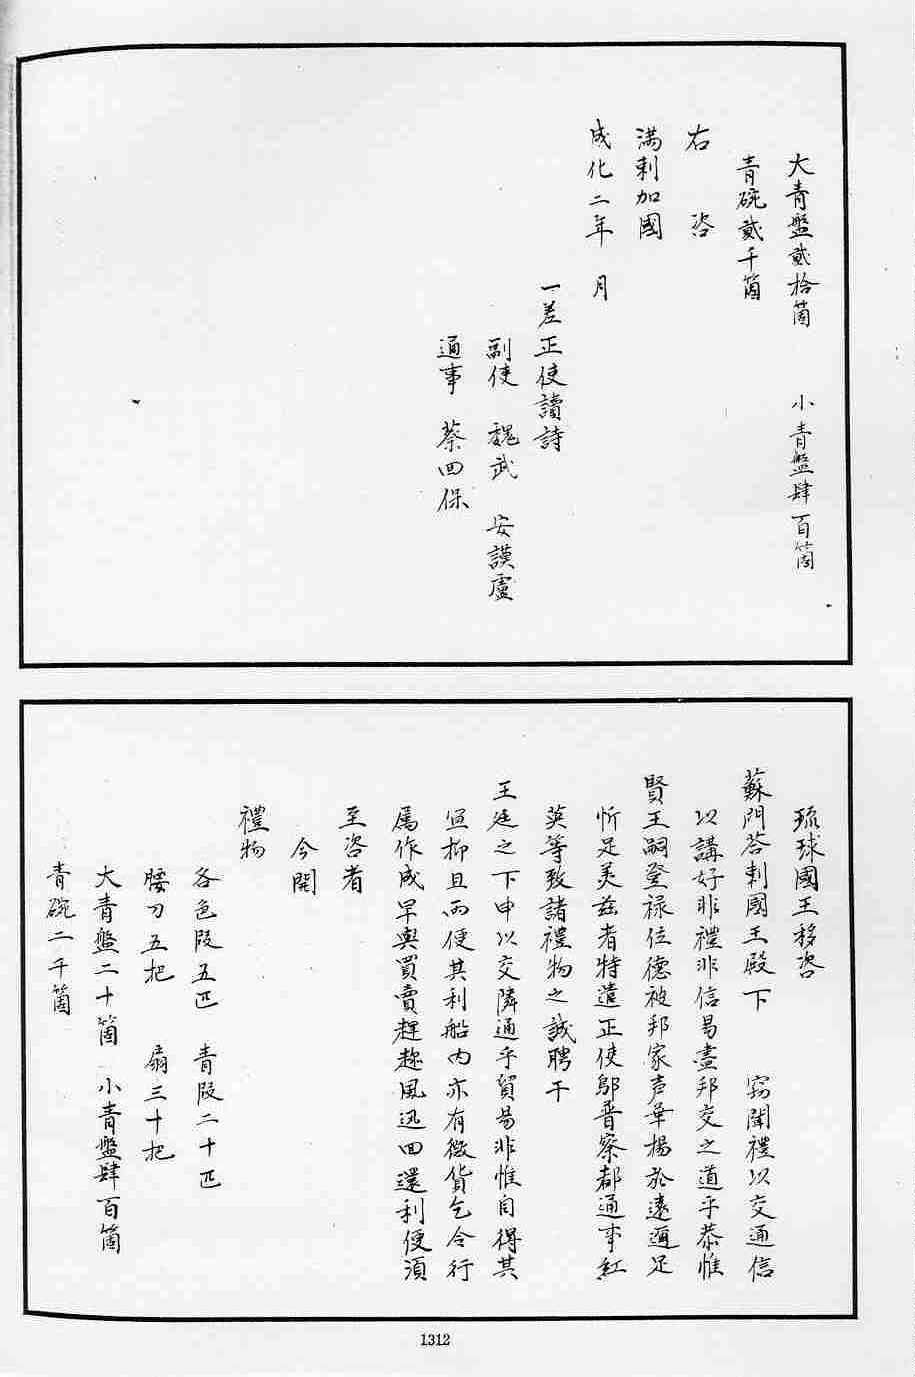 大青盤貳拾箇　小青盤肆百箇
青碗貳千箇
右　咨
滿剌加國
成化二年　月
一差正使讀詩
副使　魏武　安謨盧
通事　蔡回保
琉球國王移咨
蘇門荅剌國王殿下　竊聞禮以交通信
以講好非禮非信曷盡邦交之道乎恭惟
賢王嗣登祿位德被邦家声華揚於遠邇足
忻足美茲者特遣正使鄔普察都通事紅
英等致諸禮物之誠聘干
王廷之下申以交隣通乎貿易非惟自得其
宜抑且兩便其利船内亦有微貨乞令行
属作成早與買賣趕趂風迅回還利便須
至咨者
今開
禮物
各色段五匹　青段二十匹
腰刀五把　扇三十把
大青盤二十箇　小青盤肆百箇
青碗二千箇
1312